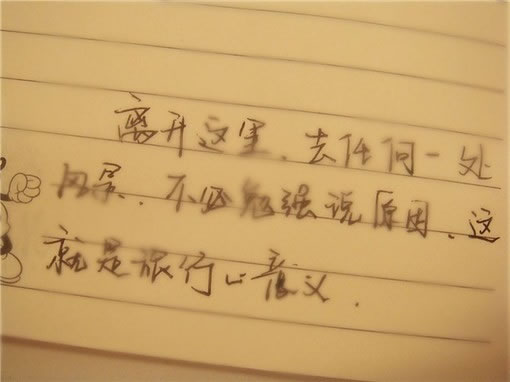 离开这里、去任何一处
风景、不必勉强说原因、这
就是旅行的意义.